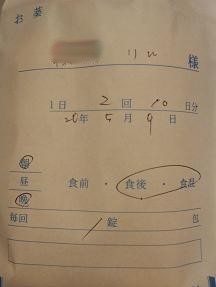 お薬
りん 様
1日 2 回 10 日分
20年 5月 9日
朝
昼 食前・食後・食間
晩
毎回 1 錠 包